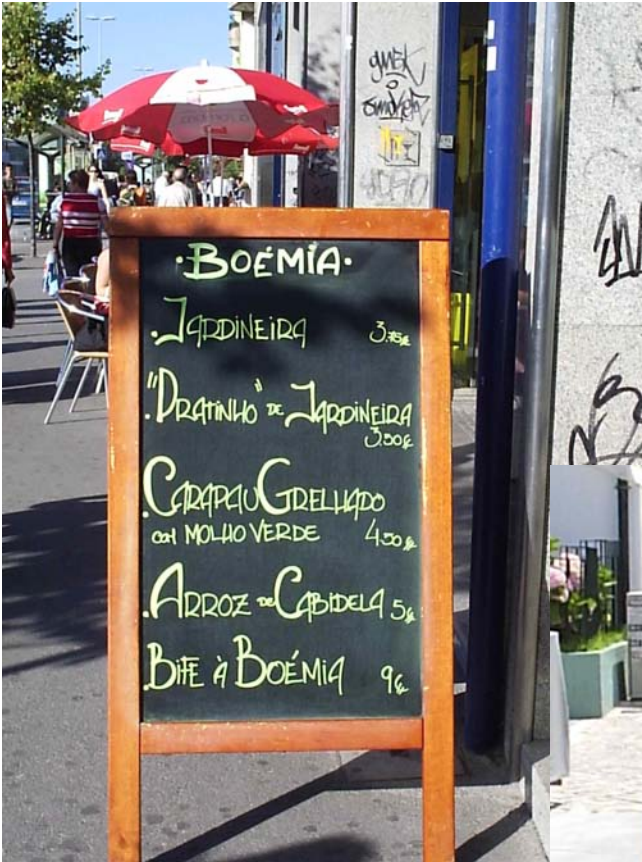 ·BOÉMIA·
·JARDINEIRA 3.75€
·"PRATINHO" DE JARDINEIRA
3.50€
·CARAPAU GRELHADO
COM MOLHO VERDE 4.50€
·ARROZ DE CABIDELA 5€
·BIFE À BOÉMIA 9€